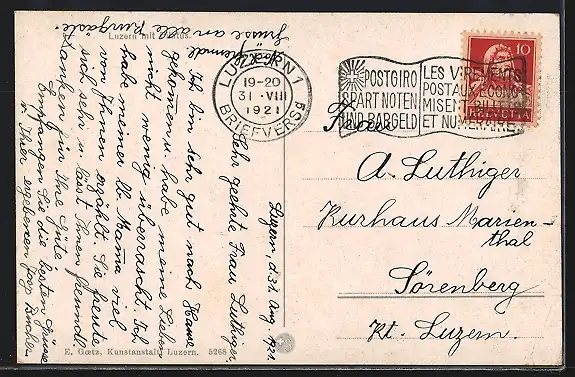 Luzern, d. 31. Aug. 1921.
Sehr geehrte Frau Luthiger
Ich bin sehr gut nach Hause
gekommen u. habe meine Lieben
nicht wenig überrascht. Ich
habe meiner lb. Mama viel
von Ihnen erzählt. Sie freute
sich sehr u. lässt Ihnen freundl.
danken für Ihre Güte.
Empfangen Sie die besten Grüsse
v. Ihrer ergebenen
freundl.
Grüsse an alle Kurgäste.
Luzern mit Pilatus.
E. Goetz, Kunstanstalt, Luzern. 5268
LUZERN 1
19-20
31. VIII
1921
BRIEFVERS.
POSTGIRO
SPART NOTEN
UND BARGELD
LES VIREMENTS
POSTAUX ECONO-
MISENT BILLETS
ET NUMERAIRE
10
HELVETIA
Frau
A. Luthiger
Kurhaus Marien-
thal
Sörenberg
Kt. Luzern.